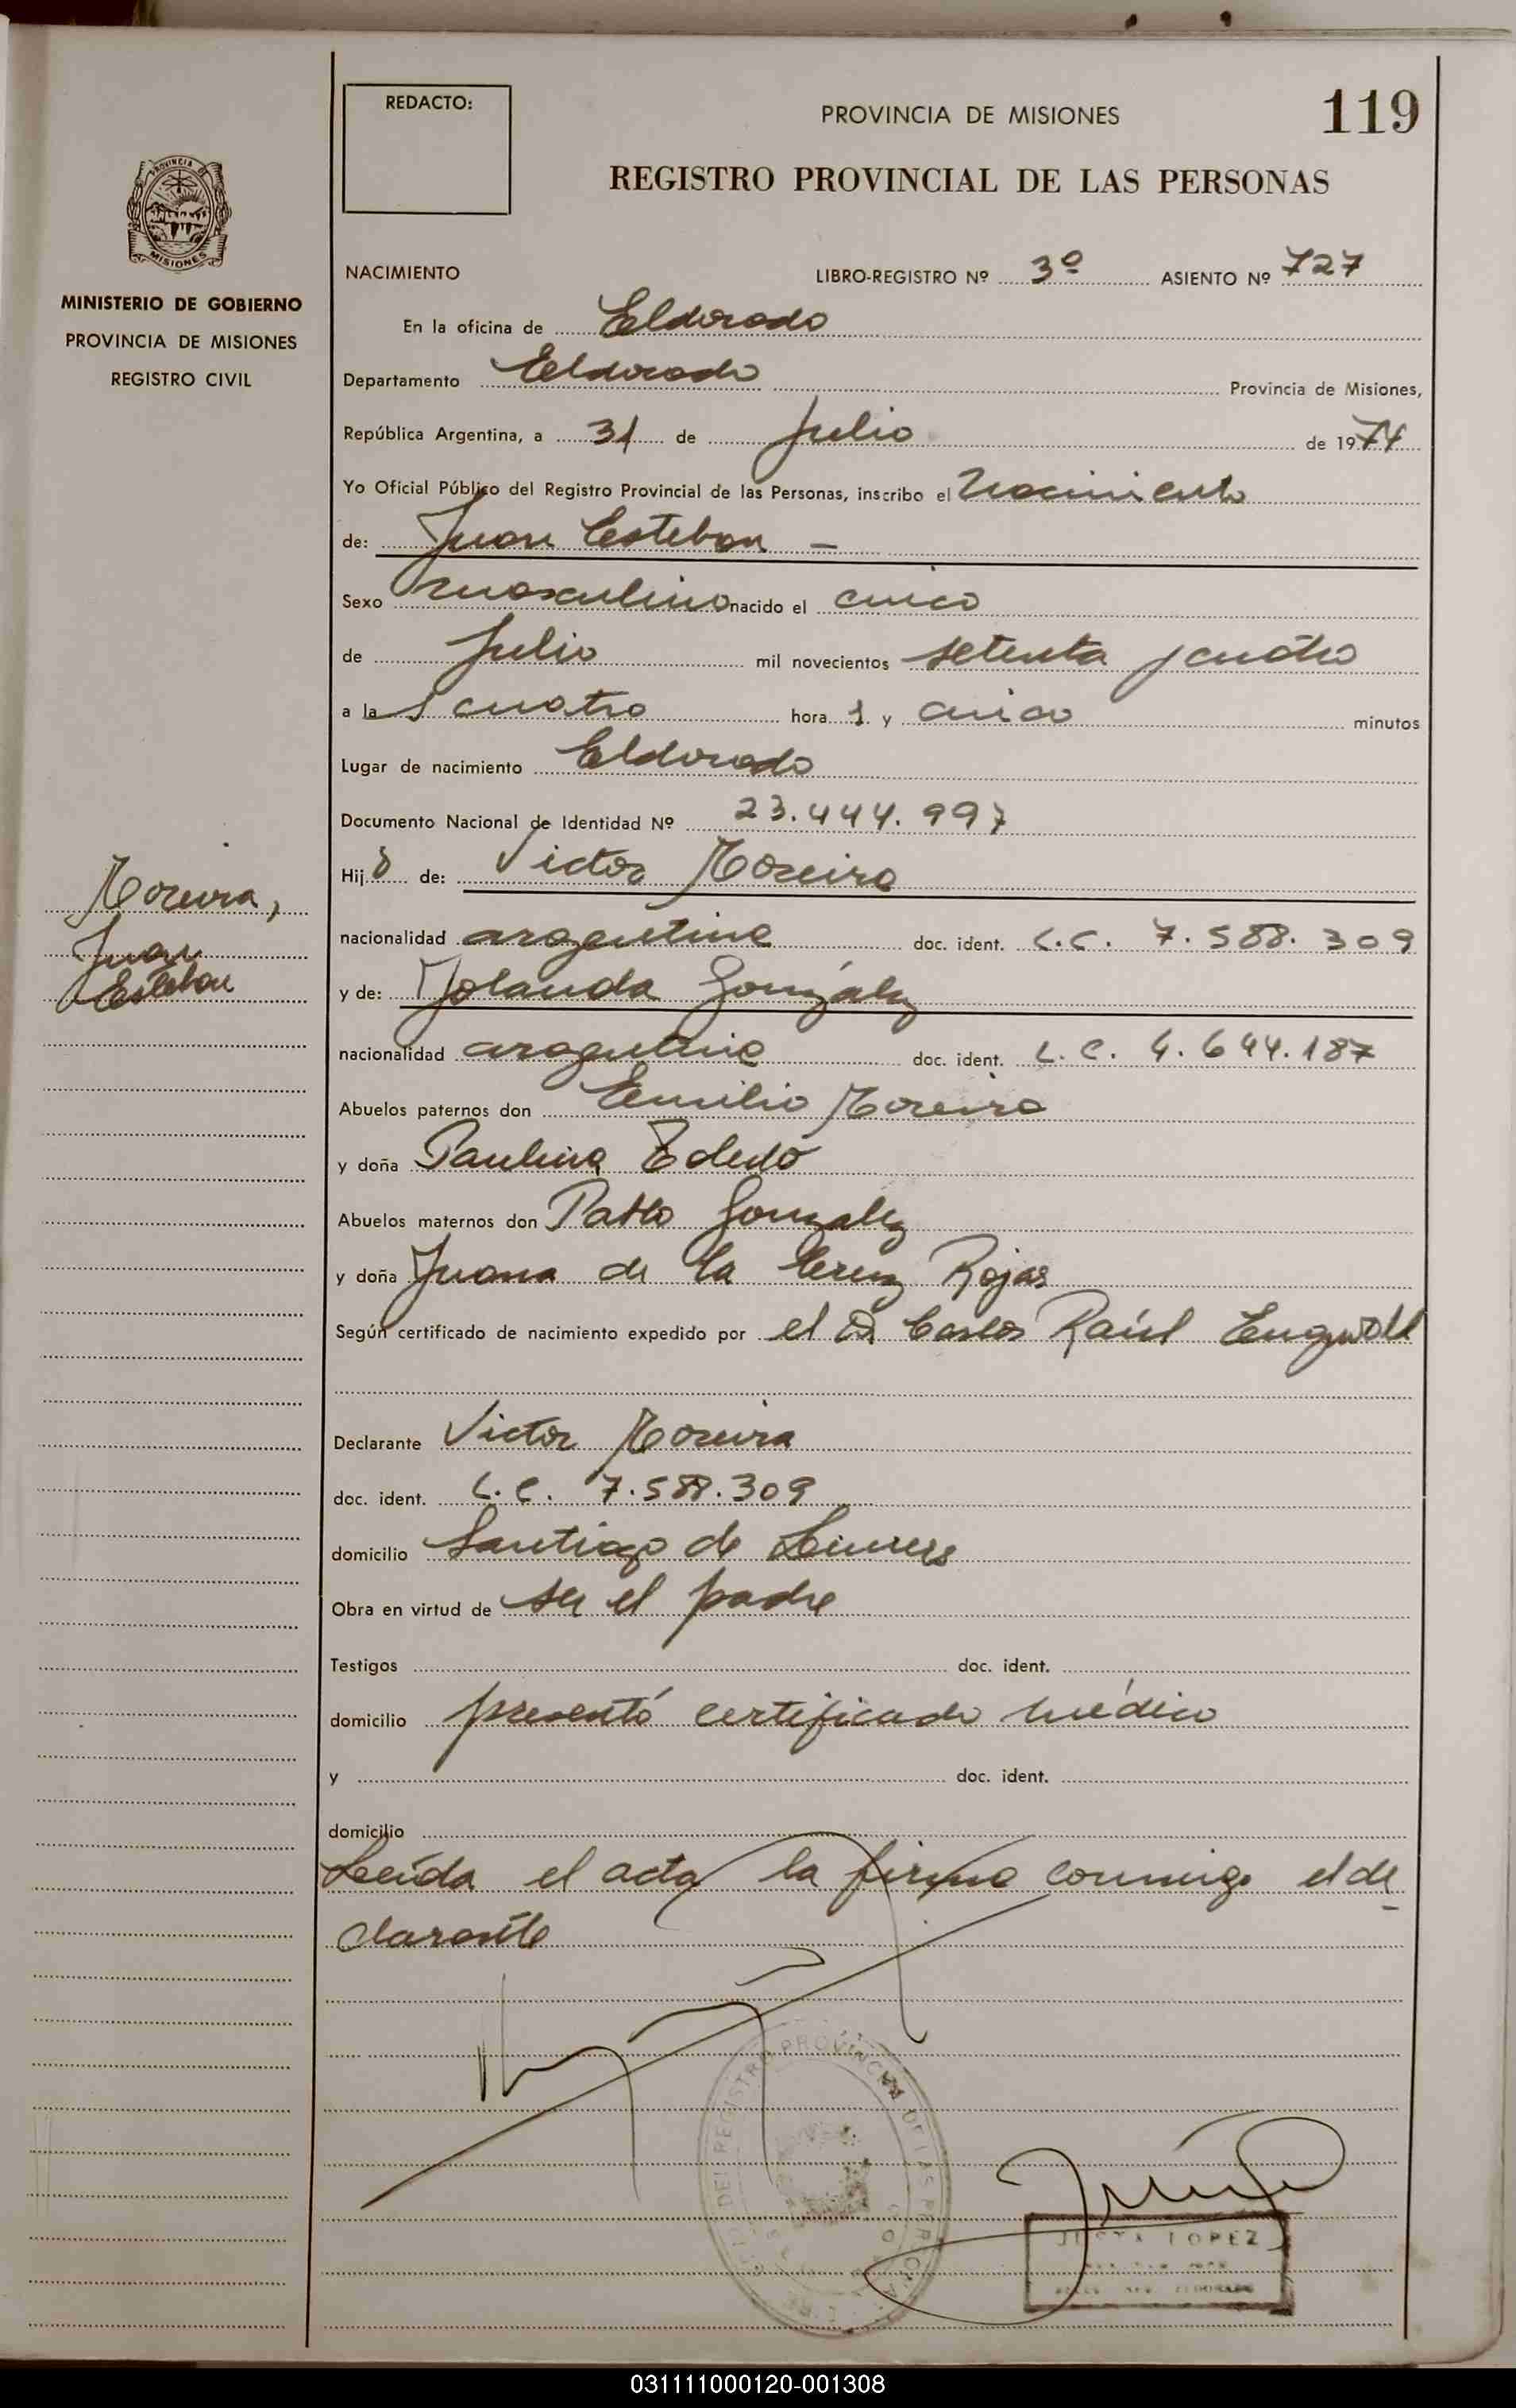 REDACTO:
PROVINCIA DE MISIONES
119
REGISTRO PROVINCIAL DE LAS PERSONAS
PROVINCIA DE
MISIONES
MINISTERIO DE GOBIERNO
PROVINCIA DE MISIONES
REGISTRO CIVIL
NACIMIENTO LIBRO-REGISTRO Nº 3º ASIENTO Nº 727
En la oficina de Eldorado
Departamento Eldorado Provincia de Misiones,
República Argentina, a 31 de Julio de 1974
Yo Oficial Público del Registro Provincial de las Personas, inscribo el Nacimiento
de: Juan Esteban -
Sexo masculino nacido el cinco
de Julio mil novecientos setenta y cuatro
a la s cuatro hora s y cinco minutos
Lugar de nacimiento Eldorado
Documento Nacional de Identidad Nº 23.444.997
Hij o de: Victor Moreira
nacionalidad argentina doc. ident. L.E. 7.588.309
y de: Yolanda González
nacionalidad argentina doc. ident. L.C. 4.644.187
Abuelos paternos don Emilio Moreira
y doña Paulina Toledo
Abuelos maternos don Pablo González
y doña Juana de la Cruz Rojas
Según certificado de nacimiento expedido por el Dr. Carlos Raúl
Declarante Victor Moreira
doc. ident. L.E. 7.588.309
domicilio Santiago de Liniers
Obra en virtud de ser el padre
Testigos doc. ident.
domicilio presentó certificado médico
y doc. ident.
domicilio
Leída el acta la firma conmigo el de
clarante
Moreira,
Juan
Esteban
REGISTRO PROVINCIAL DE LAS PERSONAS
JUSTA LOPEZ
ELDORADO
031111000120-001308